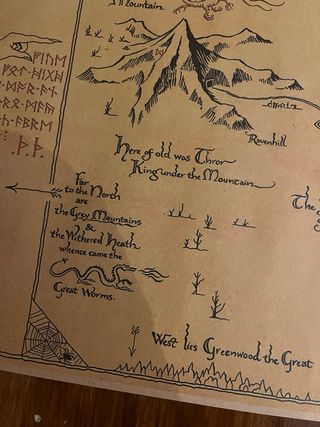 Mountain.
ᚠᛁᚢᛖ
ᚻᛁᚷᚻ
ᚦ᛫ᚦ᛫
Ravenhill
Here of old was Thror
King under the Mountain
The
Far
to the North
are
the Grey Mountains
&
the Withered Heath
whence came the
Great Worms.
West lies Greenwood the Great